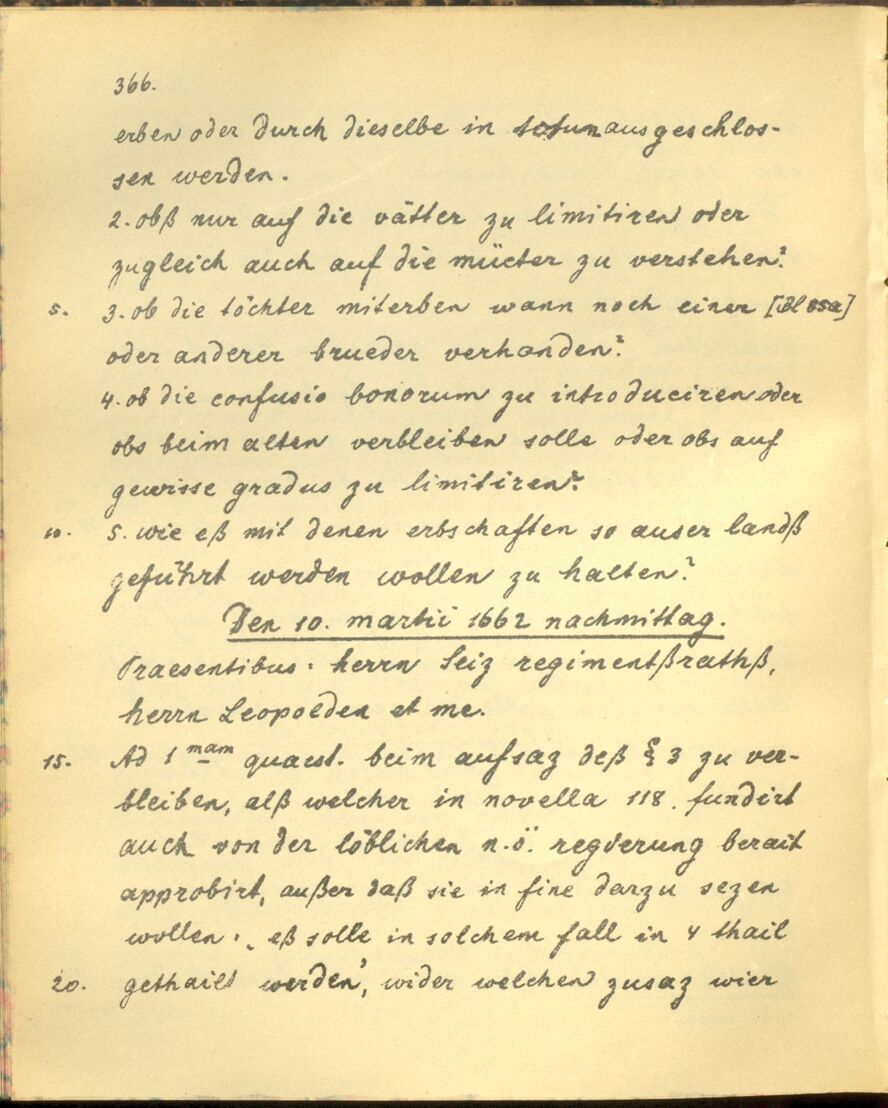 366.
erben oder durch dieselbe in totum ausgeschlos-
sen werden.
2. obß nur auf die vätter zu limitiren oder
zugleich auch auf die mücter zu verstehen?
5. 3. ob die töchter miterben wann noch einer [Bl 85a]
oder anderer brueder verhanden?
4. ob die confusio bonorum zu introduciren oder
obs beim alten verbleiben solle oder obs auf
gewisse gradus zu limitiren?
10. 5. wie eß mit denen erbschaften so auser landß
geführt werden wollen zu halten?
Den 10. martii 1662 nachmittag.
Praesentibus: herrn Seiz regimentßrathß,
herrn Leopolden et me.
15. Ad 1 mam quaest. beim aufsaz deß § 3 zu ver-
bleiben, alß welcher in novella 118. fundirt
auch von der löblichen n.ö. regierung berait
approbirt, außer daß sie in fine darzu sezen
wollen: „ eß solle in solchem fall in 4 thail
20. gethailt werden', wider welchen zusaz wier